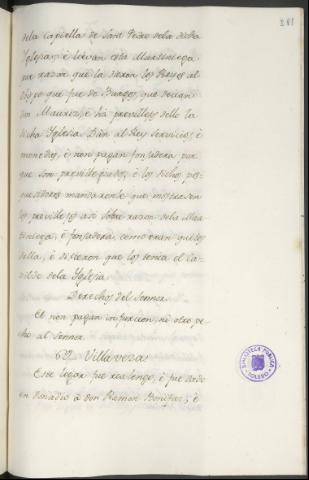 281
dela Capiella de Sant Pedro dela dicha
Yglesia, é lievan esta Martiniega
por razon que la dieron los Reyes al
Obispo que fue de Burgos, que decian
Don Mauriz, é há previllejo dello la
dicha Yglesia. Dan al Rey servicios, é
monedas, é non pagan fonsadera por
que son previllegiados, é los dichos pes
quesidores mandaronle que mostrasen
los previllejos asi sobre razon dela Mar
tiniega, é fonsadera, como eran quitos
della, é dixieron que los tenia el Ca
vildo dela Yglesia.
Derechos del Sennor.
Et non pagan infurcion, ni otro pe
cho al Sennor.
62. Villavezas
Este logar fue realengo, é fue dado
en Donadio a don Ramon Bonifaz, é
BIBLIOTECA PUBLICA
TOLEDO